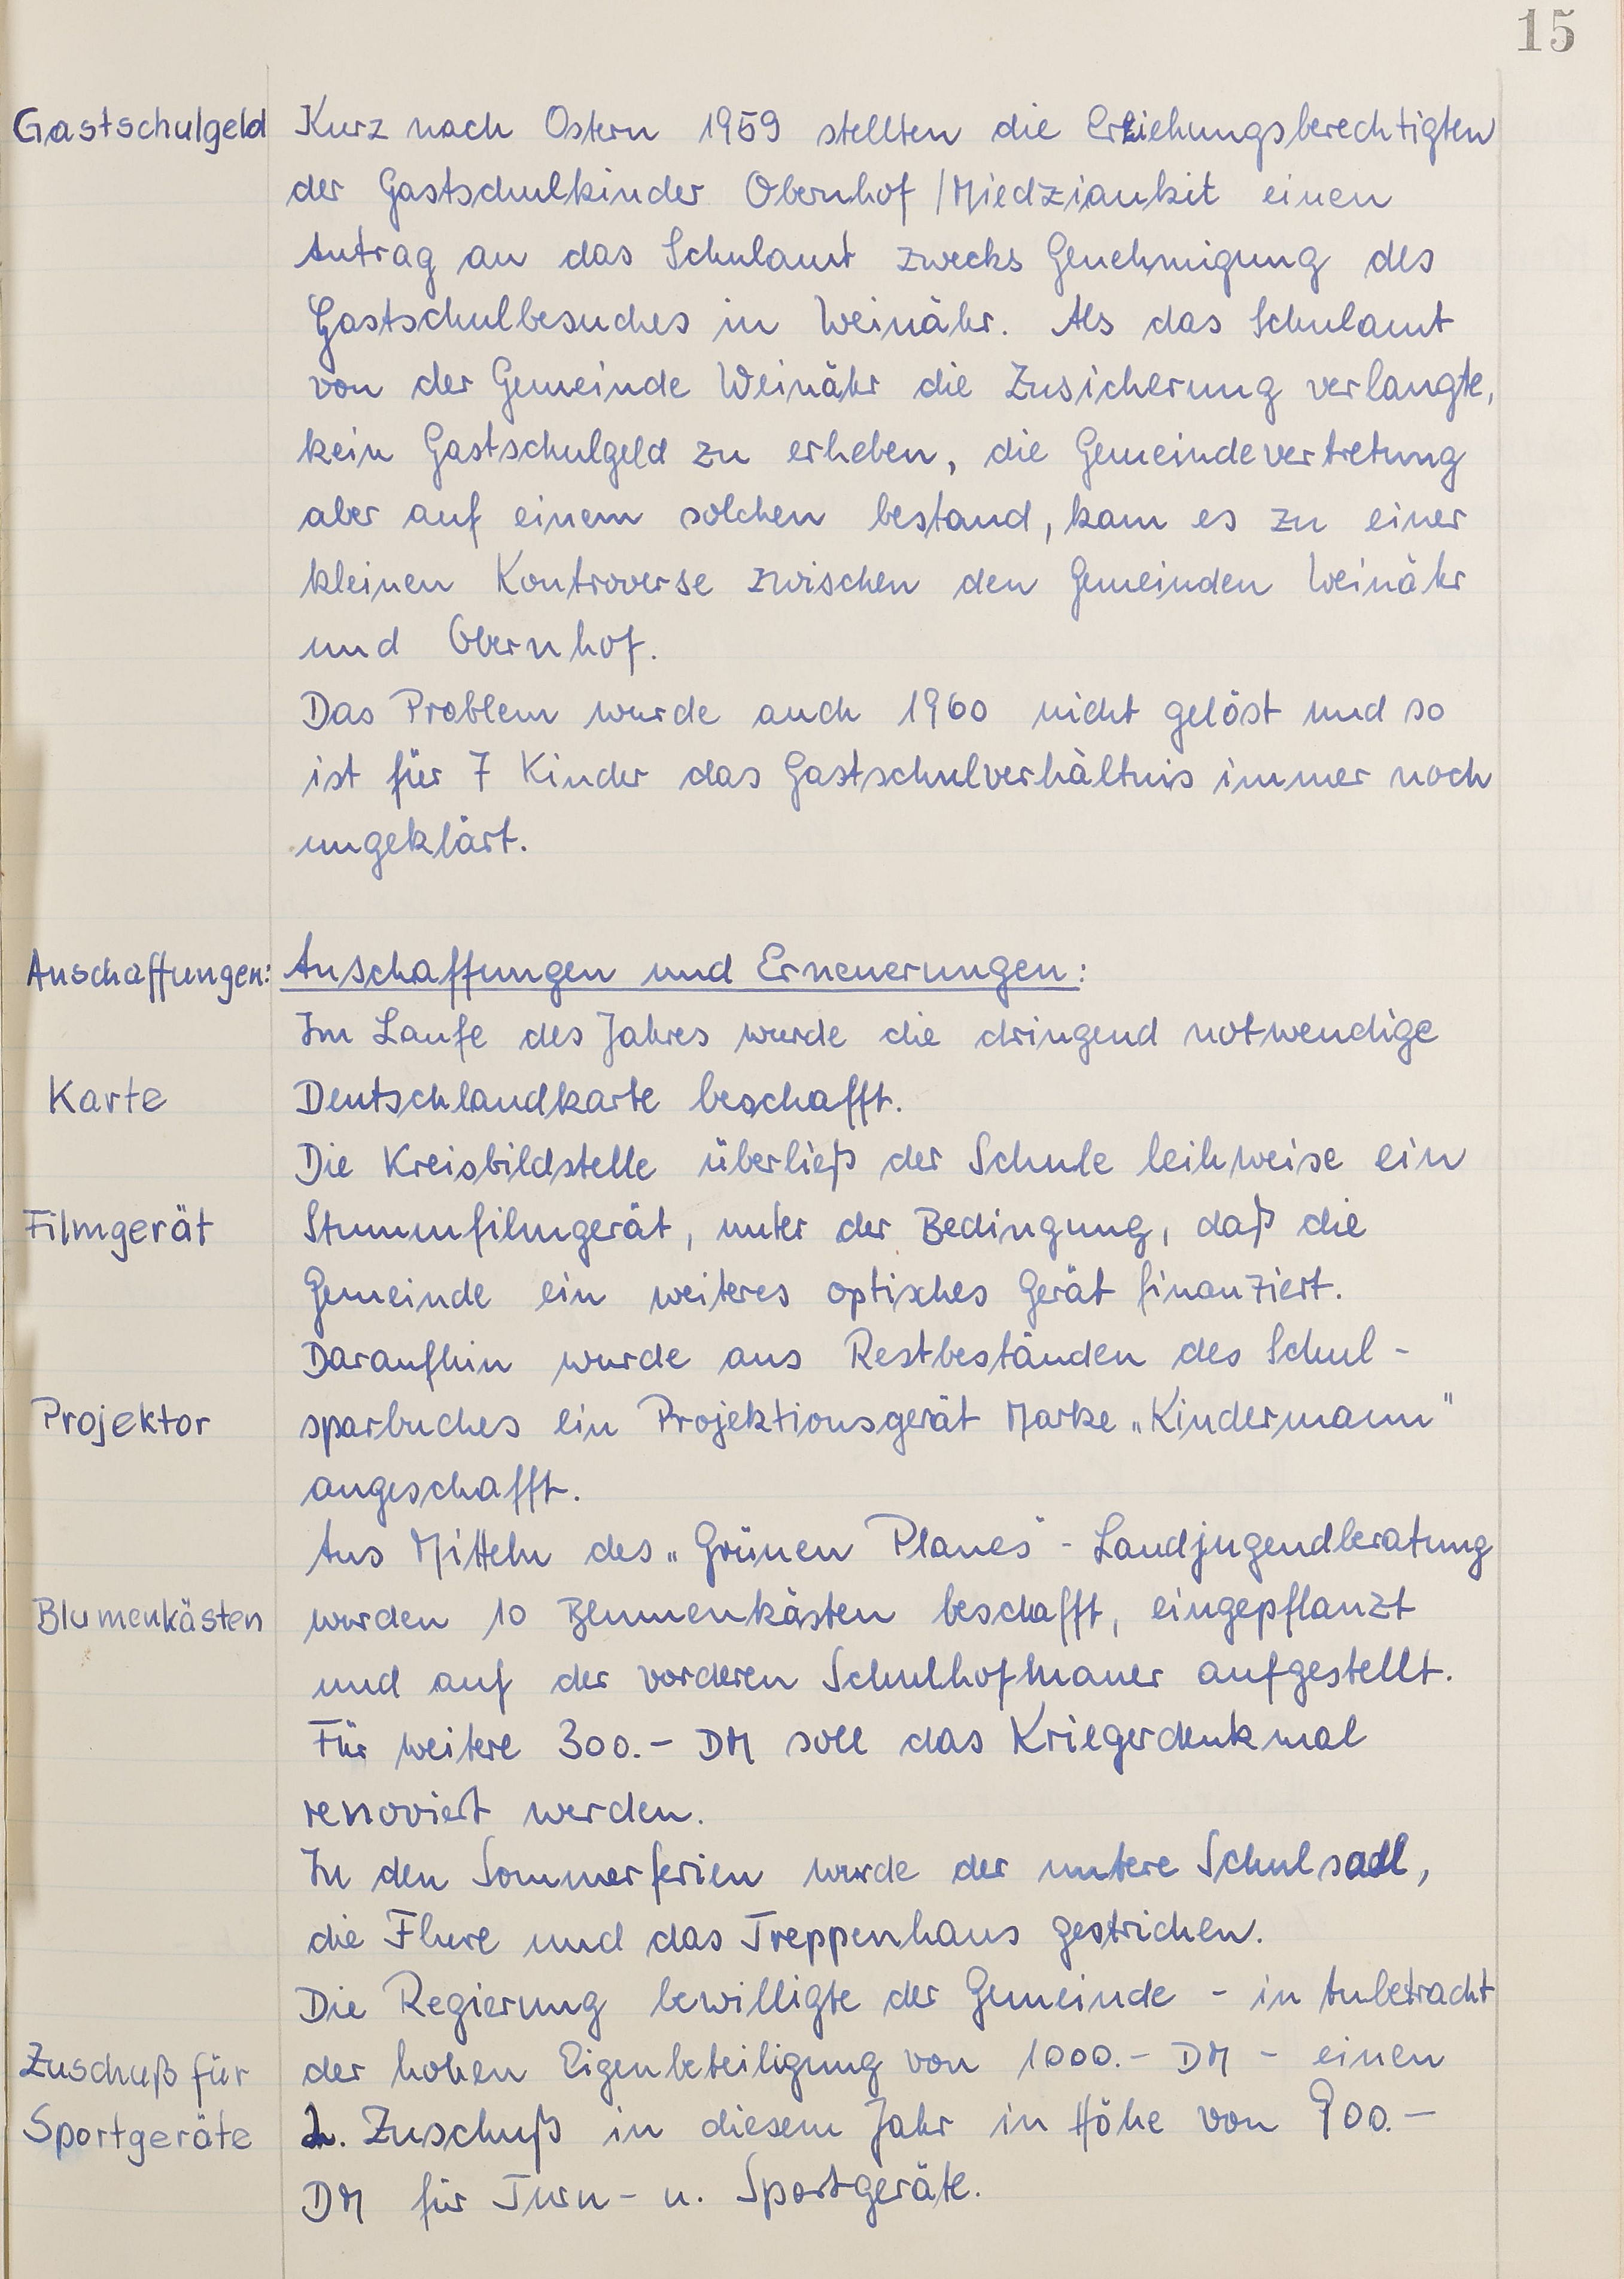 15
Gastschulgeld Kurz nach Ostern 1959 stellten die Erziehungsberechtigten
der Gastschulkinder Obernhof / Miedziankit einen
Antrag an das Schulamt zwecks Genehmigung des
Gastschulbesuches in Weinähr. Als das Schulamt
von der Gemeinde Weinähr die Zusicherung verlangte,
kein Gastschulgeld zu erheben, die Gemeindevertretung
aber auf einem solchen bestand, kam es zu einer
kleinen Kontroverse zwischen den Gemeinden Weinähr
und Obernhof.
Das Problem wurde auch 1960 nicht gelöst und so
ist für 7 Kinder das Gastschulverhältnis immer noch
ungeklärt.
Anschaffungen: Anschaffungen und Erneuerungen:
Im Laufe des Jahres wurde die dringend notwendige
Karte Deutschlandkarte beschafft.
Die Kreisbildstelle überließ der Schule leihweise ein
Filmgerät Stummfilmgerät, unter der Bedingung, daß die
Gemeinde ein weiteres optisches Gerät finanziert.
Daraufhin wurde aus Restbeständen des Schul-
Projektor sparbuches ein Projektionsgerät Marke „Kindermann"
angeschafft.
Aus Mitteln des „Grünen Planes" - Landjugendberatung
Blumenkästen wurden 10 Blumenkästen beschafft, eingepflanzt
und auf der vorderen Schulhofmauer aufgestellt.
Für weitere 300.- DM soll das Kriegerdenkmal
renoviert werden.
In den Sommerferien wurde der untere Schulsaal,
die Flure und das Treppenhaus gestrichen.
Die Regierung bewilligte der Gemeinde - in Anbetracht
Zuschuß für der hohen Eigenbeteiligung von 1000.- DM - einen
Sportgeräte 2. Zuschuß in diesem Jahr in Höhe von 900.-
DM für Turn- u. Sportgeräte.